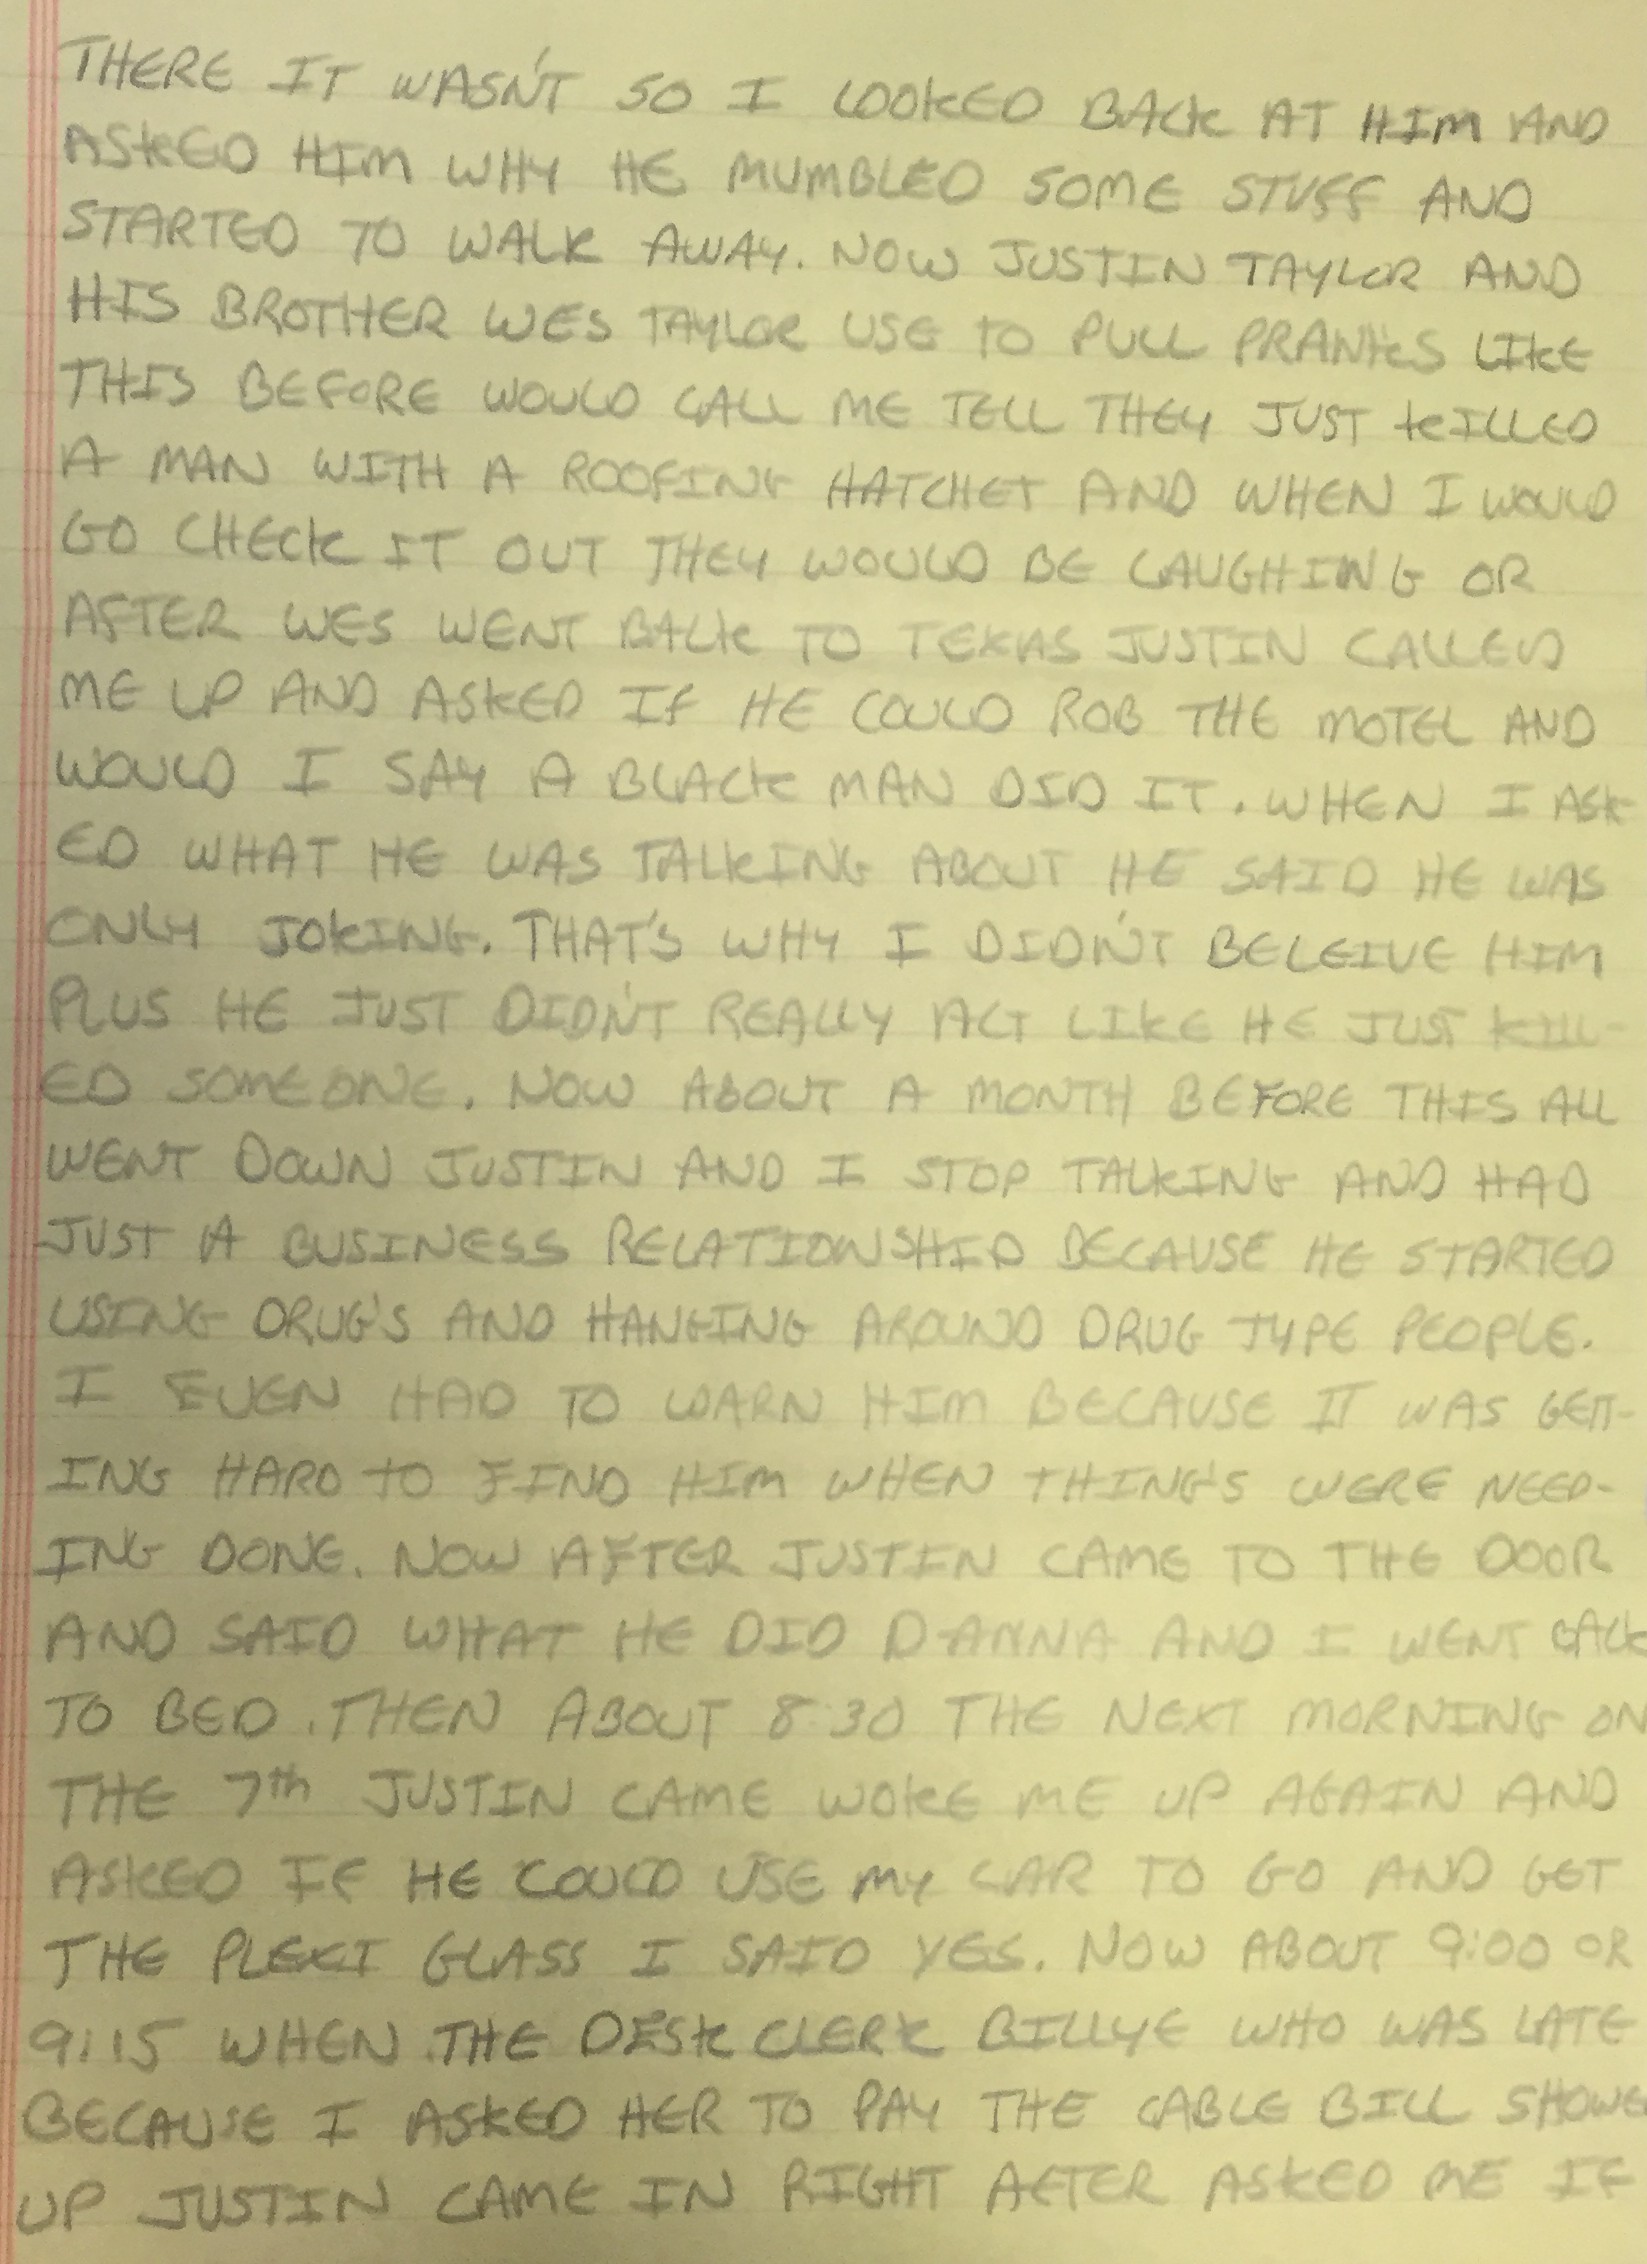 THERE IT WASN'T SO I LOOKED BACK AT HIM AND
ASKED HIM WHY HE MUMBLED SOME STUFF AND
STARTED TO WALK AWAY. NOW JUSTIN TAYLOR AND
HIS BROTHER WES TAYLOR USE TO PULL PRANKS LIKE
THIS BEFORE WOULD CALL ME TELL THEY JUST KILLED
A MAN WITH A ROOFING HATCHET AND WHEN I WOULD
GO CHECK IT OUT THEY WOULD BE LAUGHING OR
AFTER WES WENT BACK TO TEXAS JUSTIN CALLED
ME UP AND ASKED IF HE COULD ROB THE MOTEL AND
WOULD I SAY A BLACK MAN DID IT. WHEN I ASK-
ED WHAT HE WAS TALKING ABOUT HE SAID HE WAS
ONLY JOKING. THAT'S WHY I DIDN'T BELEIVE HIM
PLUS HE JUST DIDN'T REALLY ACT LIKE HE JUST KILL-
ED SOMEONE. NOW ABOUT A MONTH BEFORE THIS ALL
WENT DOWN JUSTIN AND I STOP TALKING AND HAD
JUST A BUSINESS RELATIONSHIP BECAUSE HE STARTED
USING DRUG'S AND HANGING AROUND DRUG TYPE PEOPLE.
I EVEN HAD TO WARN HIM BECAUSE IT WAS GETT-
ING HARD TO FIND HIM WHEN THING'S WERE NEED-
ING DONE. NOW AFTER JUSTIN CAME TO THE DOOR
AND SAID WHAT HE DID D-ANNA AND I WENT BACK
TO BED. THEN ABOUT 8:30 THE NEXT MORNING ON
THE 7th JUSTIN CAME WOKE ME UP AGAIN AND
ASKED IF HE COULD USE MY CAR TO GO AND GET
THE PLEXI GLASS I SAID YES. NOW ABOUT 9:00 OR
9:15 WHEN THE DESK CLERK BILLYE WHO WAS LATE
BECAUSE I ASKED HER TO PAY THE CABLE BILL SHOWE
UP JUSTIN CAME IN RIGHT AFTER ASKED ME IF